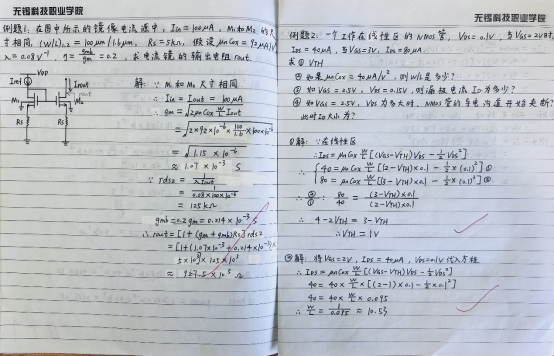 无锡科技职业学院
例题1：在图中所示的镜像电流源中，Iin=100μA，M1和M2的尺
寸相同，(W/L)1,2=100μm/1.6μm，RS=5kΩ，假设μnCox=92μA/V²
λ=0.08V⁻¹，η=gmb/gm=0.2，求电流镜的输出电阻rout.
VDD
Iref
Irout
rout
M1
M2
RS
RS
解：∵ M1和M2尺寸相同
∴ Iin=Iout=100μA
∴ gm=√2μnCox W/L Iout
=√2×92×10⁻⁶×100/1.6×100×10⁻⁶
=√1.15×10⁻⁶
≈1.07×10⁻³ S
∵ rds2=1/λIout
=1/0.08×100×10⁻⁶
=125kΩ
gmb=0.2gm=0.214×10⁻³ S
∴ rout=[1+(gm+gmb)RS]rds2
=[1+(1.07×10⁻³+0.214×10⁻³)×
5×10³]×125×10³
≈927.5×10³ Ω
无锡科技职业学院
例题2：一个工作在线性区的NMOS管，VDS=0.1V，当VGS=2V时，
IDS=40μA，当VGS=3V，IDS=80μA
求①VTH
②如果μnCox=40μA/V²，则W/L是多少？
③如VGS=2.5V，VDS=0.15V，则漏极电流ID为多少？
④如VGS=2.5V，VDS为多大时，NMOS管的导电沟道开始夹断？
此时ID为
①解：∵在线性区
∴IDS=μnCox W/L[(VGS-VTH)VDS-½VDS²]
∴ 40=μnCox W/L[(2-VTH)×0.1-½×(0.1)²]①
80=μnCox W/L[(3-VTH)×0.1-½×(0.1)²]②
∴ ②/① : 80/40=(3-VTH)×0.1/(2-VTH)×0.1
∴ 4-2VTH=3-VTH
∴VTH=1V
②解：将VGS=2V，IDS=40μA，VDS=0.1V代入方程
∴ IDS=μnCox W/L[(VGS-VTH)VDS-½VDS²]
40=40×W/L×[(2-1)×0.1-½×0.1²]
40=40×W/L×0.095
∴ W/L=1/0.095≈10.53